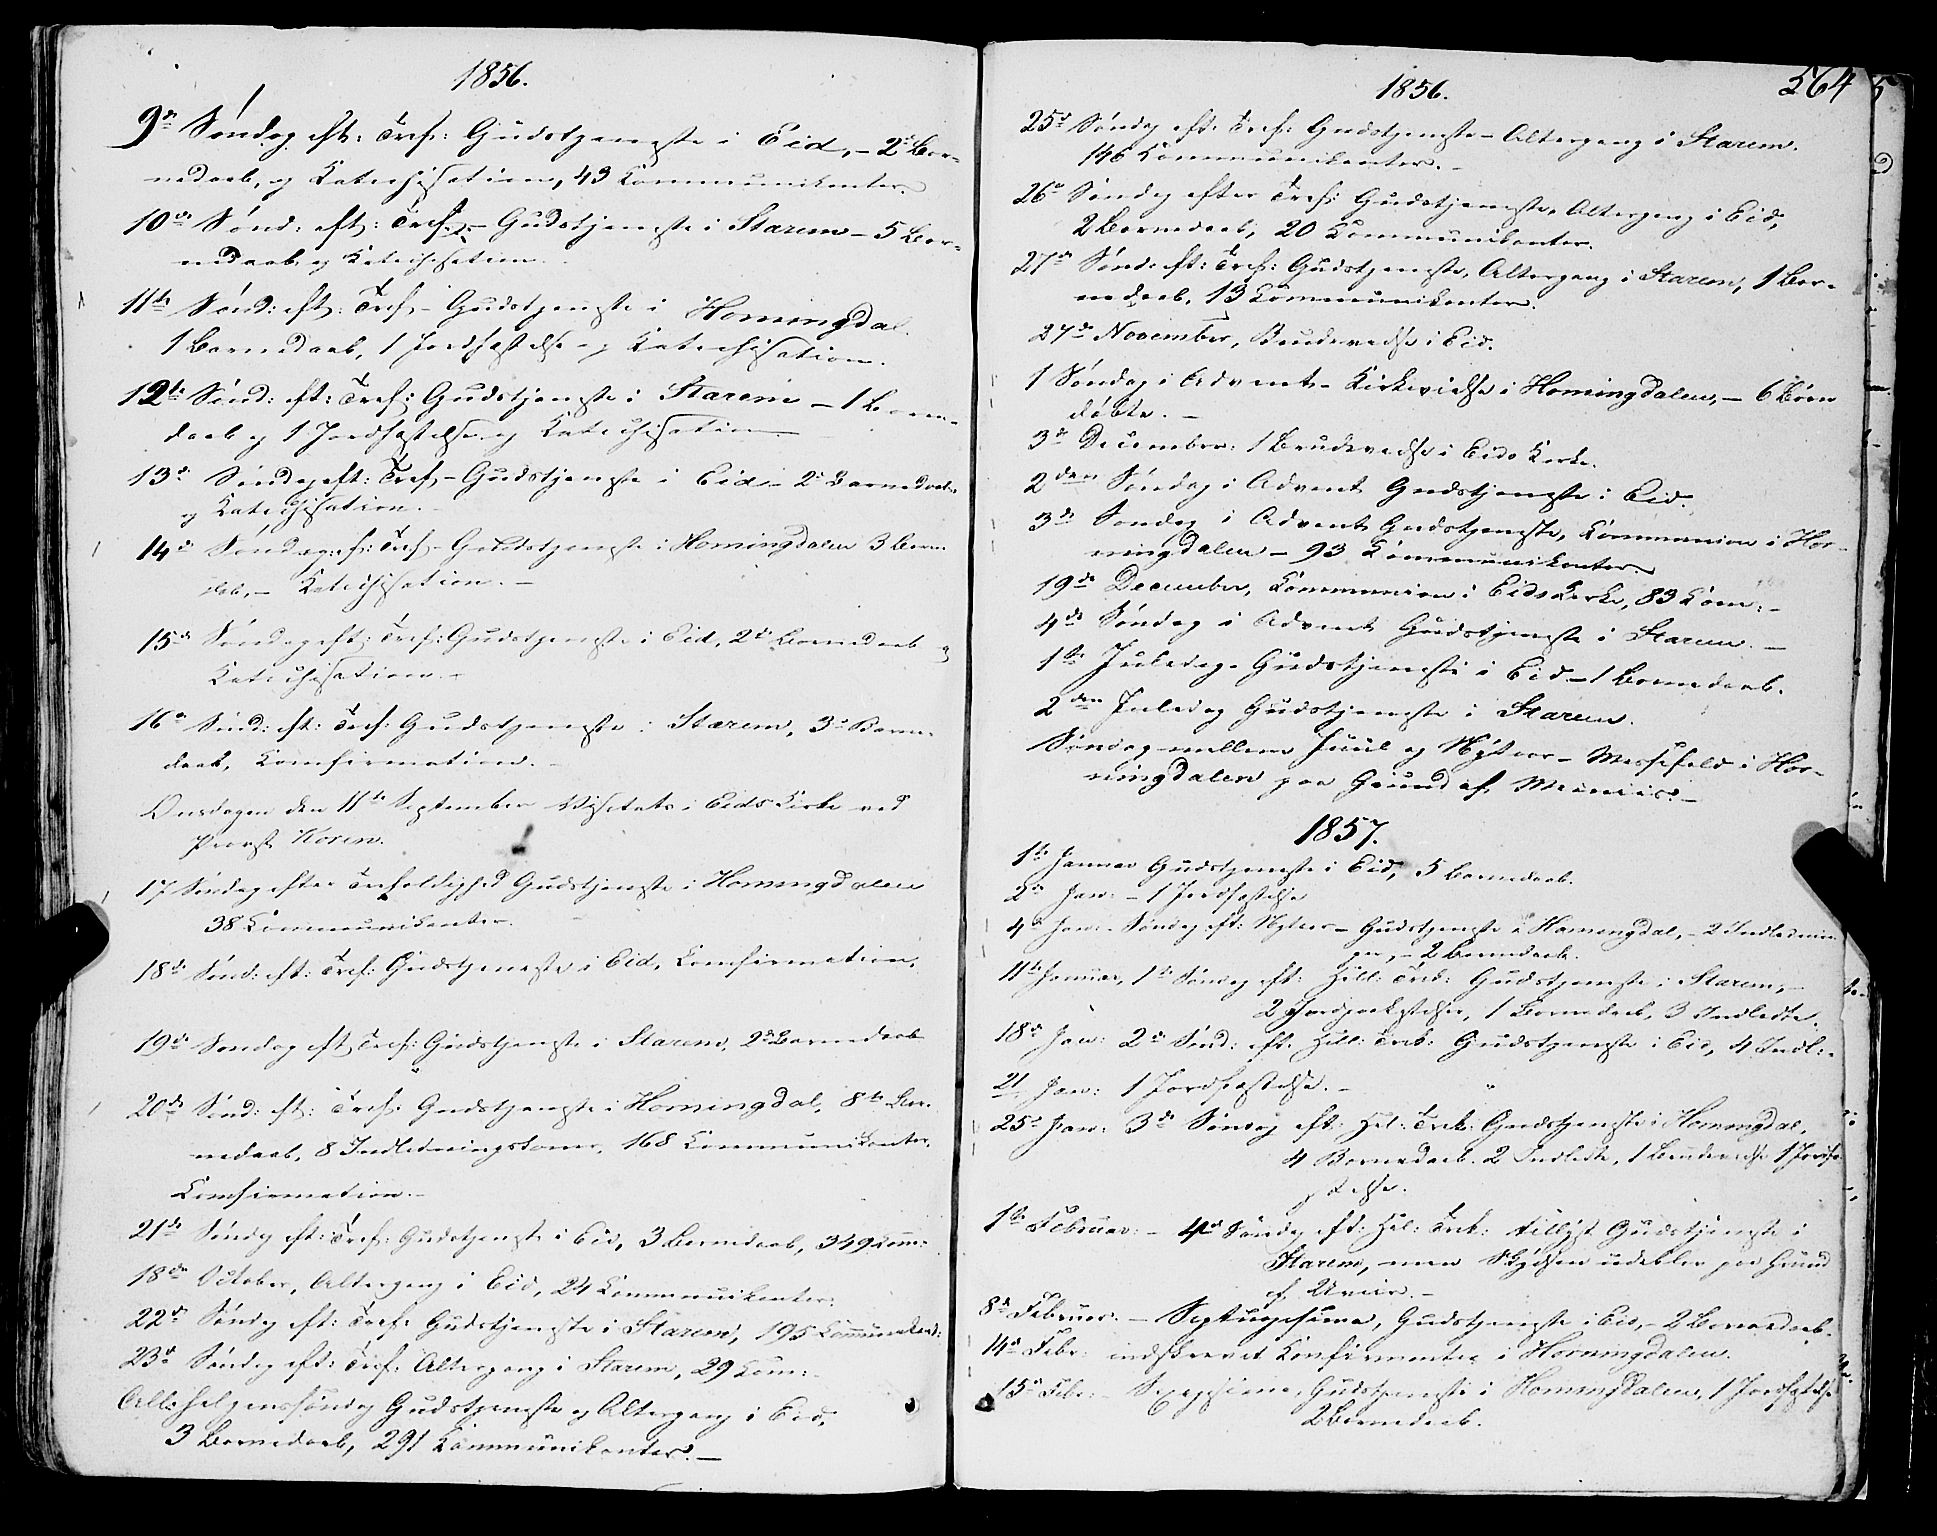 1856.
9de Søndag eft: Tref: Gudstjeneste i Eid, – 2de Bar-
nedaab, og Katechisation, 43 Kommunikanter.
10de Sønd: eft: Tref: – Gudstjeneste i Starem – 5 Bar-
nedaab og Katechisation.
11te Sønd: eft: Tref – Gudstjeneste i Horningdal.
1 Barnedaab, 1 Jordfæstelse og Katechisation.
12te Sønd: eft: Tref: Gudstjeneste i Starem – 1 Barne-
daab og 1 Jordfæstelse og Katechisation
13de Søndag eft: Tref – Gudstjeneste i Eid – 2de Barnedaab
og Katechisation.
14de Søndag ef: Tref – Gudstjeneste i Horningdalen 3 Barne-
daab, – Katechisation. –
15de Søndag eft: Tref: Gudstjeneste i Eid, 2de Barnedaab og
Katechisation. –
16de Sønd: eft: Tref: Gudstjeneste i Starem, 3de Barne-
daab, Confirmation. –
Onsdagen den 11te September Visitats i Eids Kirke ved
Provst Koren.
17 Søndag efter Trefoldighed Gudstjeneste i Horningdalen
38 Kommunikanter.
18de Sønd: eft: Tref: Gudstjeneste i Eid, Confirmation.
19de Søndag eft Tref: Gudstjeneste i Starem, 2de Barnedaab
20de Sønd: eft: Tref: Gudstjeneste i Horningdal, 8te Bar-
nedaab, 8 Indledningskoner, 168 Kommunikanter,
Confirmation. –
21de Søndag eft: Tref: Gudstjeneste i Eid, 3 Barnedaab, 349 Kom:
18de October, Altergang i Eid, 24 Kommunikanter.
22de Søndag eft: Tref: Gudstjeneste i Starem, 195 Kommunikant:
23de Søndag eft: Tref: Altergang i Starem, 29 Kom: –
Alle helgenssøndag Gudstjeneste og Altergang i Eid,
3 Barnedaab, 291 Kommunikanter. –
1856.
564
25de Søndag eft: Tref: Gudstjeneste – Altergang i Starem.
146 Kommunikanter. –
26de Søndag efter Tref: Gudstjeneste, Altergang i Eid,
2 Barnedaab, 20 Kommunikanter.
27de Sønd: eft: Tref: Gudstjeneste, Altergang i Starem, 1 Bar-
nedaab, 13 Kommunikanter.
27de November, Brudevielse i Eid.
1 Søndag i Advent – Kirkevielse i Horningdalen, – 6 Børn
døbte. –
3de December: 1 Brudevielse i Eids Kirke.
2den Søndag i Advent Gudstjeneste i Eid.
3de Søndag i Advent Gudstjeneste, Communion i Hor-
ningdalen – 93 Kommunikanter.
19de December, Communion i Eids Kirke, 83 Kom: –
4de Søndag i Advent Gudstjeneste i Starem. –
1te Juledag. Gudstjeneste i Eid – 1 Barnedaab.
2den Juledag Gudstjeneste i Starem.
Søndag mellem Juul og Nytaar – Messefald i Hor-
ningdalen paa Grund af Meniis. –
1857.
1te Januar Gudstjeneste i Eid, 5 Barnedaab.
2de Jan: – 1 Jordfæstelse
4de Jan: Søndag eft: Nytaar – Gudstjeneste i Horningdal, – 2 Indlednin-
ger, – 2 Barnedaab.
11te Januar, 1te Søndag eft: Hell: Trek: Gudstjeneste i Starem, –
2 Jordpaakastelser, 1 Barnedaab, 3 Indledte.
18de Jan: 2de Sønd: eft: Hell: Trek: Gudstjeneste i Eid, 4 Indl: –
21. Jan: 1 Jordfæstelse. –
25de Jan: 3de Søndag eft: Hel: Trek: Gudstjeneste i Horningdal,
4 Barnedaab. 2 Indledte, 1 Brudevielse 1 Jordfæ-
stelse.
1te Februar: – 4de Søndag eft: Hel: Trek: tillyst Gudstjeneste i
Starem, men Skydsen udeblev paa Grund
af Uveir. –
8de Februar. – Septuagesima, Gudstjeneste i Eid, – 2 Barnedaab.
14de Febr: indskrevet Konfirmanter i Horningdalen.
15de Febr: – Sexagesima, Gudstjeneste i Horningdalen, 1 Jordfæstelse
2 Barnedaab.